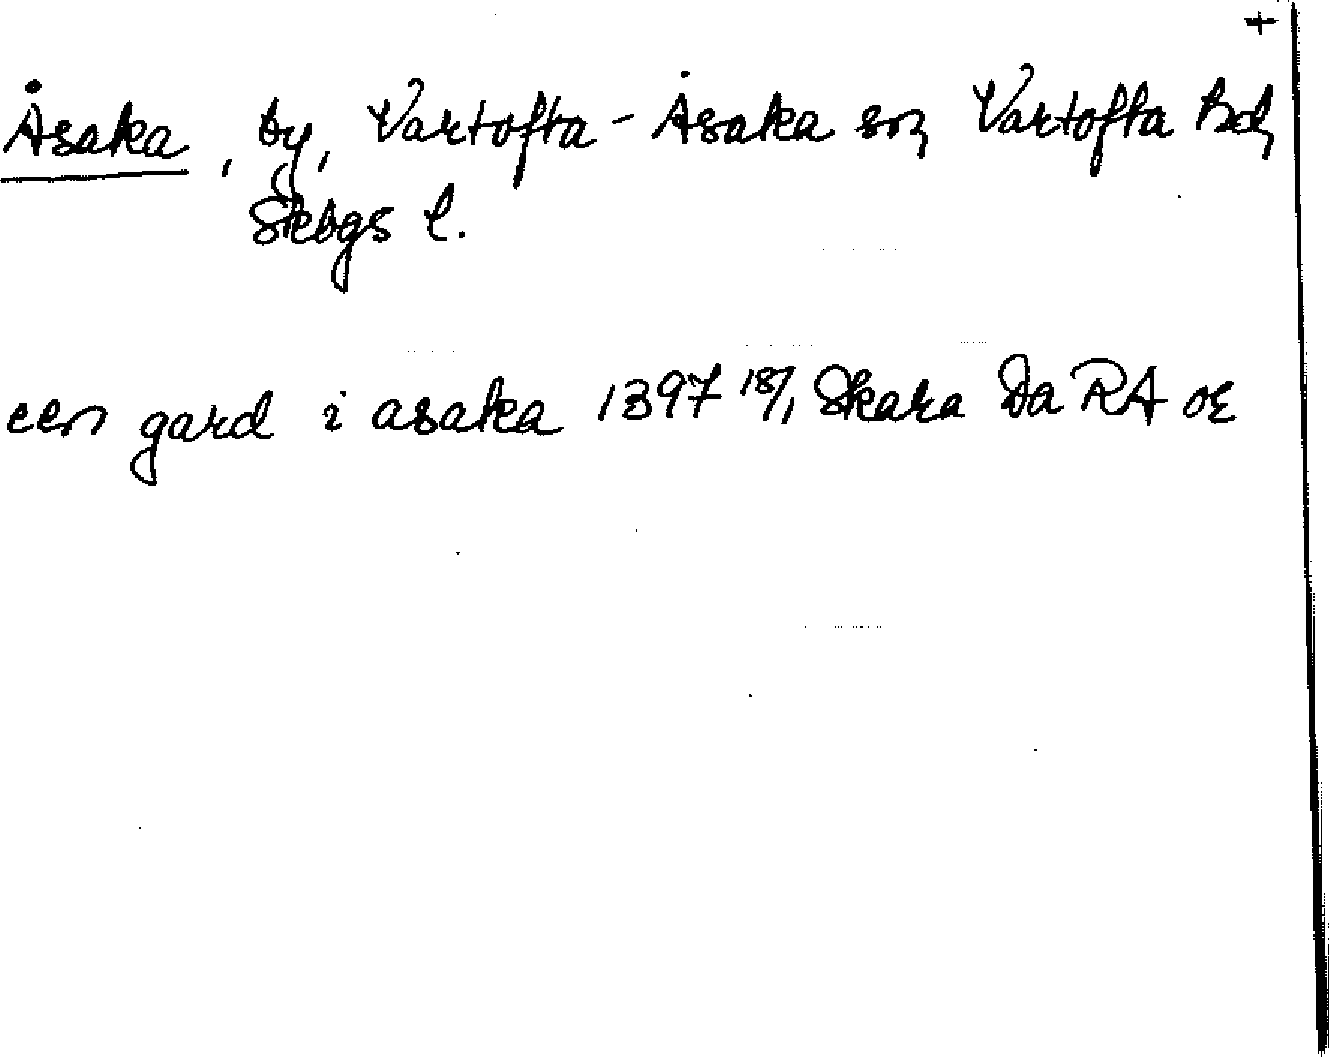 +
Åsaka, by, Vartofta-Åsaka sn, Vartofta hd,
Skbgs l.
een gard i asaka 1397 18/1 Skara Da RA or